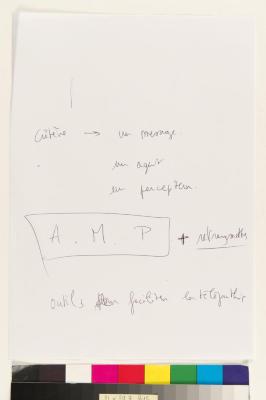 critère → un message.
un agent
un percepteur.
A. M. P +
outils faciliter la télépathie